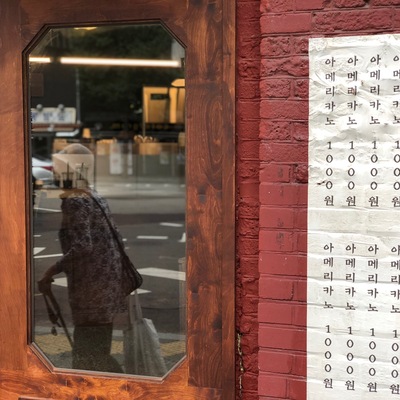 아메리카노 1000원
아메리카노 1000원
아메리카노 1000원
아메리카노 1000원
아메리카노 1000원
아메리카노 1000원
아메리카노 1000원
아메리카노 1000원